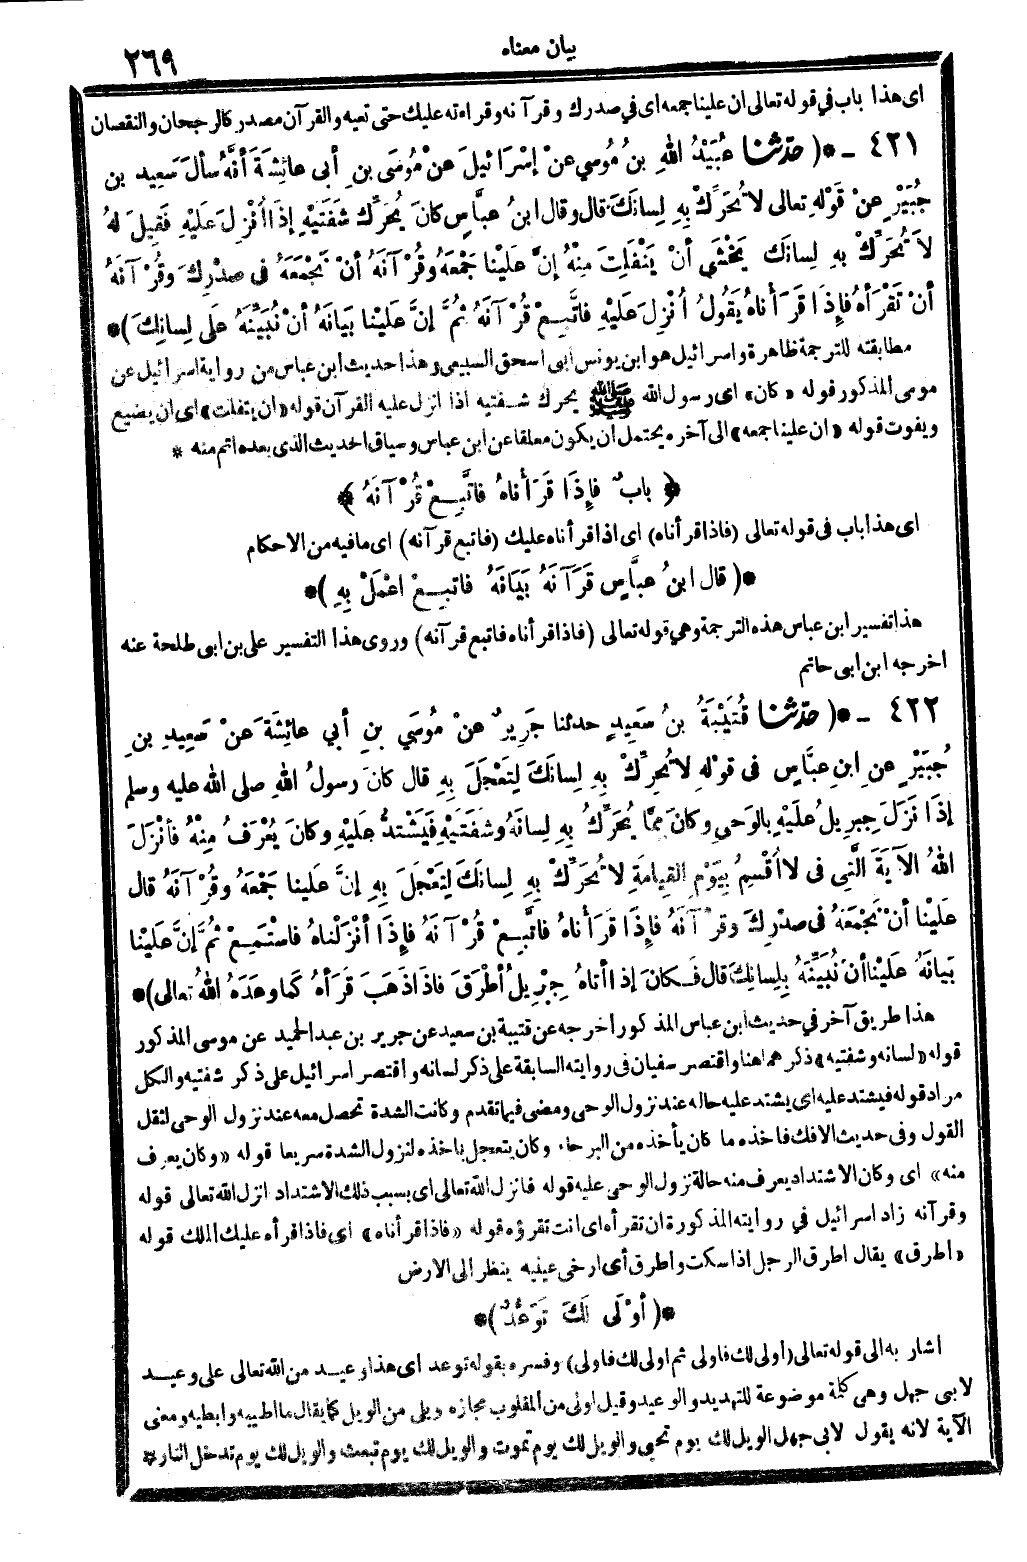 بيان معناه
٢٦٩
اى هذا باب في قوله تعالى ان علينا جمعه اى في صدرك وقرآنه وقراءته عليك حتى تعيه والقرآن مصدر كالرجحان والنقصان
٤٢١ - *( حَدَّثَنَا عُبَيْدُ اللهِ بنُ مُوسي عنْ إسْرَائيلَ عنْ مُوسَى بنِ أبى عائِشَةَ أنَّهُ سألَ سَعِيد بن
جُبَيْرٍ عنْ قَوْلِهِ تعالى لاَ تُحَرِّكْ بِهِ لِسانَكَ قال وقال ابنُ عبَّاسٍ كانَ يُحَرِّكُ شَفَتَيْهِ إذَا اُنْزِلَ عَلَيْهِ فَقِيلَ لهُ
لاَ تُحَرِّكْ بهِ لِسانَكَ يَخْشَي أنْ يَنْفَلِتَ مِنْهُ إنَّ عَلَيْنا جَمْعَهُ وقُرْآنَهُ أنْ نَجْمَعَهُ فى صدْرِكَ وقُرْآنَهُ
أنْ تَقْرَأهُ فإِذَا قرَأناهُ يَقُولُ اُنْزِلَ عَلَيْهِ فاتَّبِعْ قُرْآنَهُ ثُمَّ إنَّ عَلَيْنا بَيانَهُ أنْ نُبَيِّنَهُ عَلَى لِسانِكَ )*
مطابقته للترجمة ظاهرة واسرائيل هو ابن يونس ابى اسحق السبيعى وهذا حديث ابن عباس من رواية اسرائيل عن
موسى المذكور قوله «كان» اى رسول الله ﷺ يحرك شفتيه اذا انزل عليه القرآن قوله «ان يتفلت» اى ان يضيع
ويفوت قوله «ان علينا جمعه» الى آخره يحتمل ان يكون معلقا عن ابن عباس وسياق الحديث الذى بعده اتم منه *
﴿ بابٌ فإِذَا قَرَأناهُ فاتَّبِعْ قُرْآنَهُ ﴾
اى هذا باب فى قوله تعالى (فاذا قرأناه) اى اذا قرأناه عليك (فاتبع قرآنه) اى ما فيه من الاحكام
*( قال ابنُ عبَّاسٍ قَرَآنَهُ بَيَانَهُ فاتبِعْ اعْمَلْ بِهِ )*
هذا تفسير ابن عباس هذه الترجمة وهي قوله تعالى (فاذا قرأناه فاتبع قرآنه) وروى هذا التفسير على بن ابى طلحة عنه
اخرجه ابن ابى حاتم
٤٢٢ - *( حَدَّثَنَا قُتَيْبَةُ بنُ سَعِيدٍ حدثنا جَرِيرٌ عنْ مُوسَي بنِ أبي عائِشَةَ عنْ سَعِيدِ بنِ
جُبَيْرٍ عنِ ابنِ عبَّاسٍ فى قوْلهِ لاَ تُحرِّكْ بِهِ لِسانَكَ لِتَعْجَلَ بِهِ قال كانَ رسولُ اللهِ صلى الله عليه وسلم
إذَا نَزَلَ جِبرِيلُ عَلَيْهِ بالوَحىِ وكانَ مِمَّا يُحَرِّكُ بِهِ لِسانَهُ وشَفَتَيْهِ فَيَشْتَدُّ عَلَيْهِ وكانَ يُعْرَفُ مِنْهُ فأنْزَلَ
اللهُ الآيَةَ الَّتِى فى لاَ أُقْسِمُ بِيَوْمِ القِيامَةِ لاَ تُحَرِّكْ بِهِ لِسانَكَ لِتَعْجَلَ بِهِ إنَّ عَلَيْنا جَمْعَهُ وقُرْآنَهُ قال
عَلَيْنا أنْ نَجْمَعَهُ فى صدْرِكَ وقرْآنَهُ فإِذَا قَرَأناهُ فاتَّبِعْ قُرْآنَهُ فإِذَا أنْزَلْناهُ فاسْتَمِعْ ثُمَّ إنَّ عَلَيْنا
بَيانَهُ عَلَيْنا أنْ نُبَيِّنَهُ بِلِسانِكَ قال فَكانَ إذا أتاهُ جِبْرِيلُ أطْرَقَ فاذَا ذَهَبَ قَرَأهُ كَما وعَدَهُ اللهُ تعالى)*
هذا طريق آخر في حديث ابن عباس المذكور اخرجه عن قتيبة بن سعيد عن جرير بن عبد الحميد عن موسى المذكور
قوله «لسانه وشفتيه» ذكرهما هنا واقتصر سفيان فى روايته السابقة على ذكر لسانه واقتصر اسرائيل على ذكر شفتيه والكل
مراد قوله فيشتد عليه اى يشتد عليه حاله عند نزول الوحى ومضى فيما تقدم وكانت الشدة تحصل معه عند نزول الوحى لثقل
القول وفى حديث الافك فاخذه ما كان يأخذه من البرحاء وكان يتعجل باخذه لنزول الشدة سريعا قوله «وكان يعرف
منه» اى وكان الاشتداد يعرف منه حالة نزول الوحى عليه قوله فانزل الله تعالى اى بسبب ذلك الاشتداد انزل الله تعالى قوله
وقرآنه زاد اسرائيل في روايته المذكورة ان تقرأه اى انت تقرؤه قوله «فاذا قرأناه» اى فاذا قرأه عليك الملك قوله
«اطرق» يقال اطرق الرجل اذا سكت واطرق أى ارخى عينيه ينظر الى الارض
*( أوْلَى لَكَ تَوَعُّدٌ )*
اشار به الى قوله تعالى (أولى لك فاولى ثم اولى لك فاولى) وفسره بقوله توعد اى هذا وعيد من الله تعالى على وعيد
لابى جهل وهى كلمة موضوعة للتهديد والوعيد وقيل اولى من المقلوب مجازه ويلى من الويل كما يقال ما اطيبه وايطبه ومعنى
الآية لانه يقول لابى جهل الويل لك يوم تحيى والويل لك يوم تموت والويل لك يوم تبعث والويل لك يوم تدخل النار *